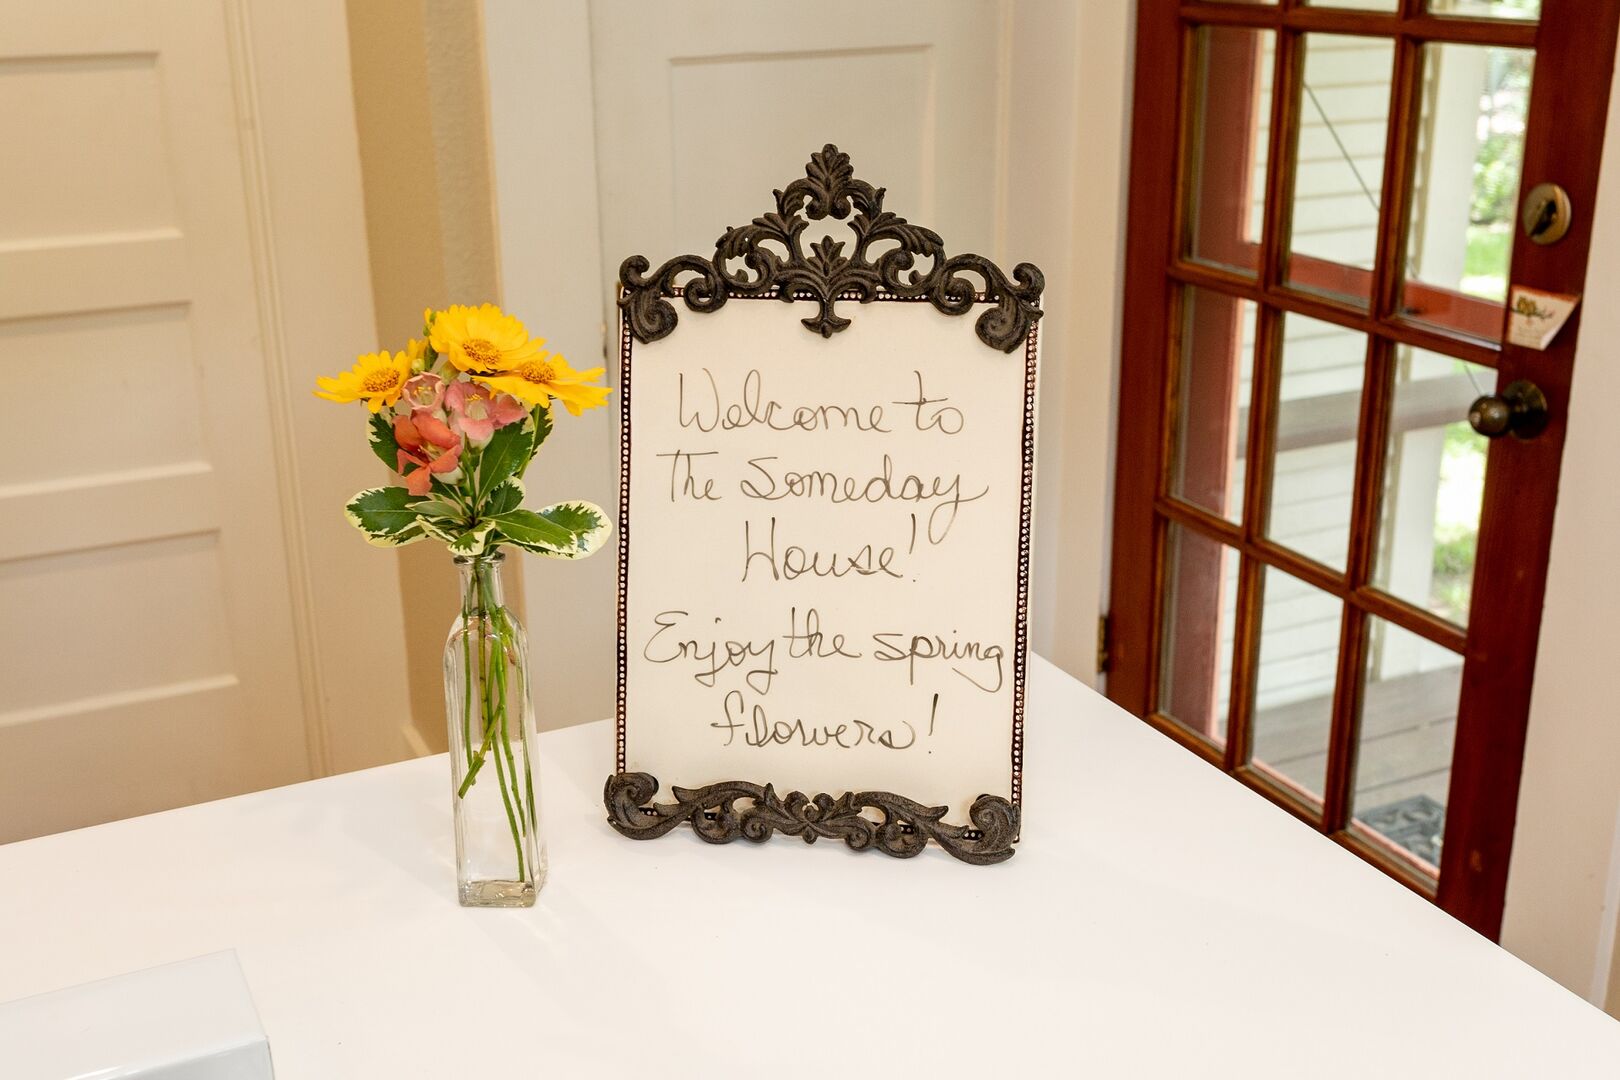 Welcome to
The Someday
House!
Enjoy the spring
flowers!